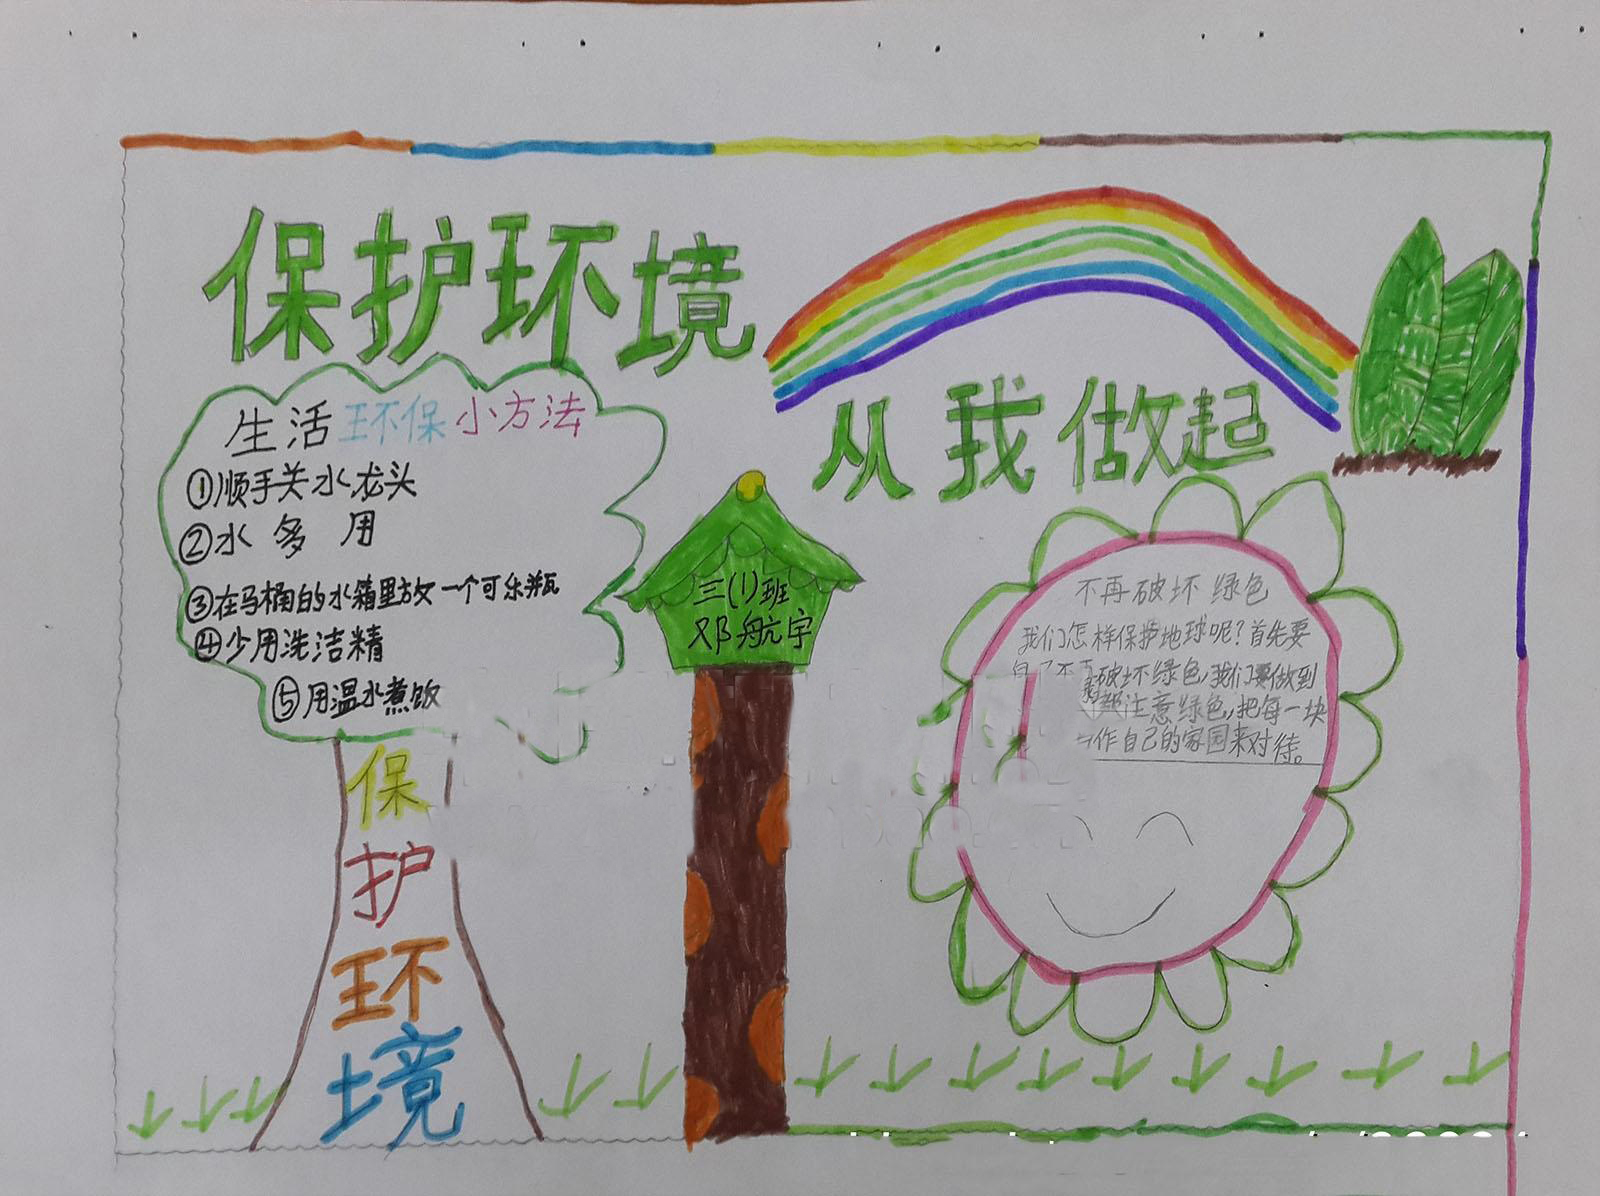 保护环境
从我做起
生活环保小方法
①顺手关水龙头
②水多用
③在马桶的水箱里放一个可乐瓶
④少用洗洁精
⑤用温水煮饭
保
护
环
境
三(1)班
邓航宇
不再破坏绿色
我们怎样保护地球呢?首先要
破坏绿色,我们要做到
注意绿色,把每一块
作自己的家园来对待。